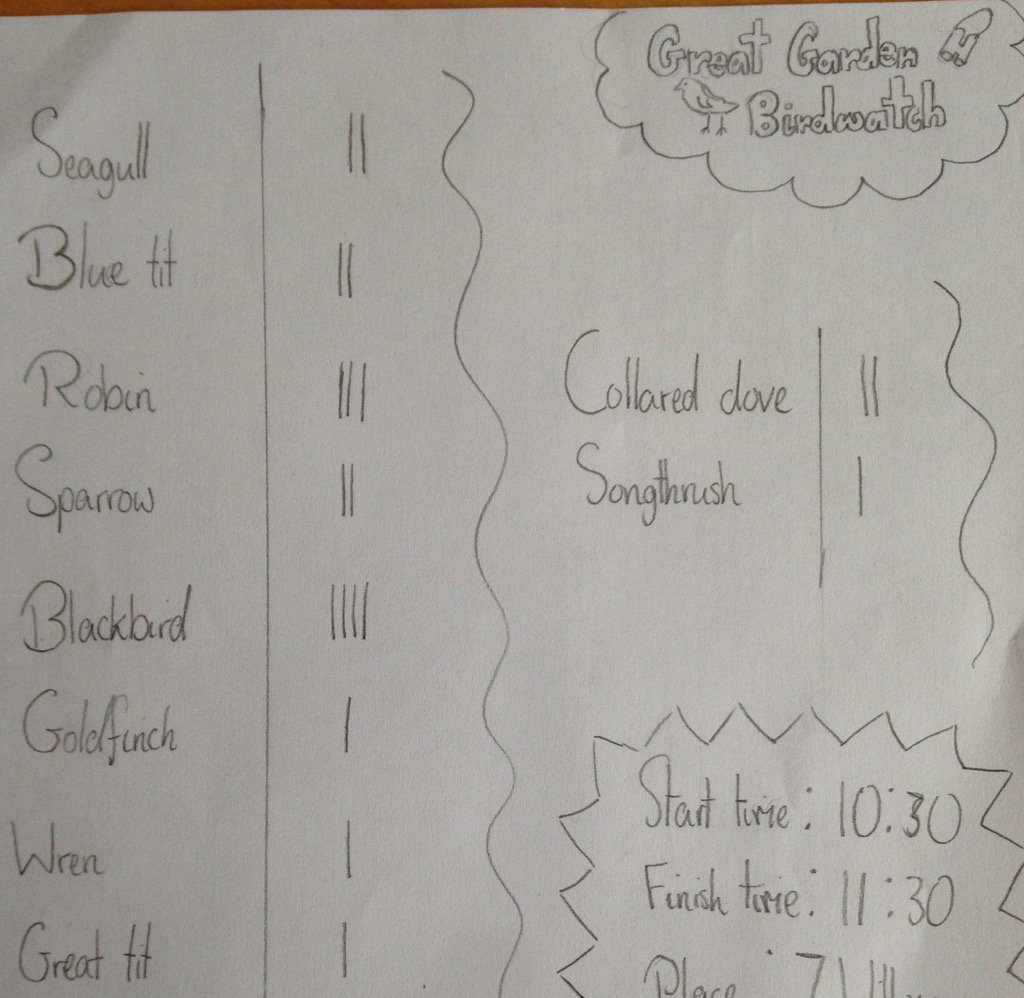 Great Garden
Birdwatch
Seagull ||
Blue tit ||
Robin |||
Sparrow ||
Blackbird ||||
Goldfinch |
Wren |
Great tit |
Collared dove ||
Songthrush |
Start time: 10:30
Finish time: 11:30
Place: 7